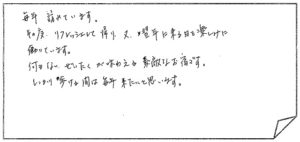 毎年 訪れています。
毎度、リフレッシュして帰り、又、翌年に来る日を楽しみに
働いています。
何もない、ぜいたくが味わえる 素敵なお宿です。
しっかり 歩ける間は毎年 来たいと思います。